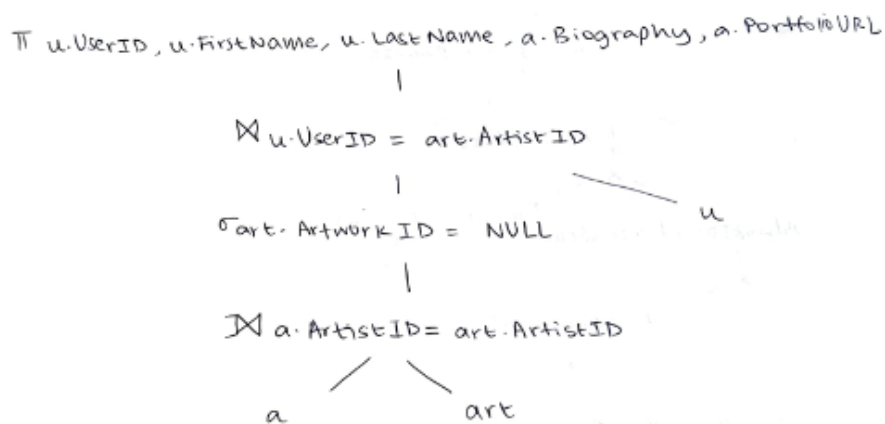 π u.UserID, u.FirstName, u.LastName, a.Biography, a.PortfolioURL
⋈ u.UserID = art.ArtistID
u
σ art.ArtworkID = NULL
⟕ a.ArtistID = art.ArtistID
a art